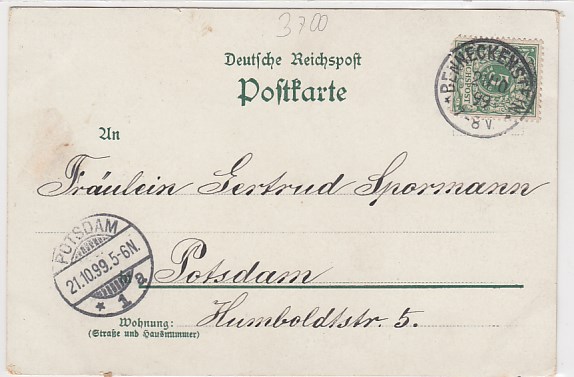 3700
Deutsche Reichspost
Postkarte
BENNECKENSTEIN
99
-8V
An
Fräulein Gertrud Spormann
POTSDAM
21.10.99.5-6N.
* 1 a
Potsdam
Humboldtstr. 5.
Wohnung:
(Straße und Hausnummer)